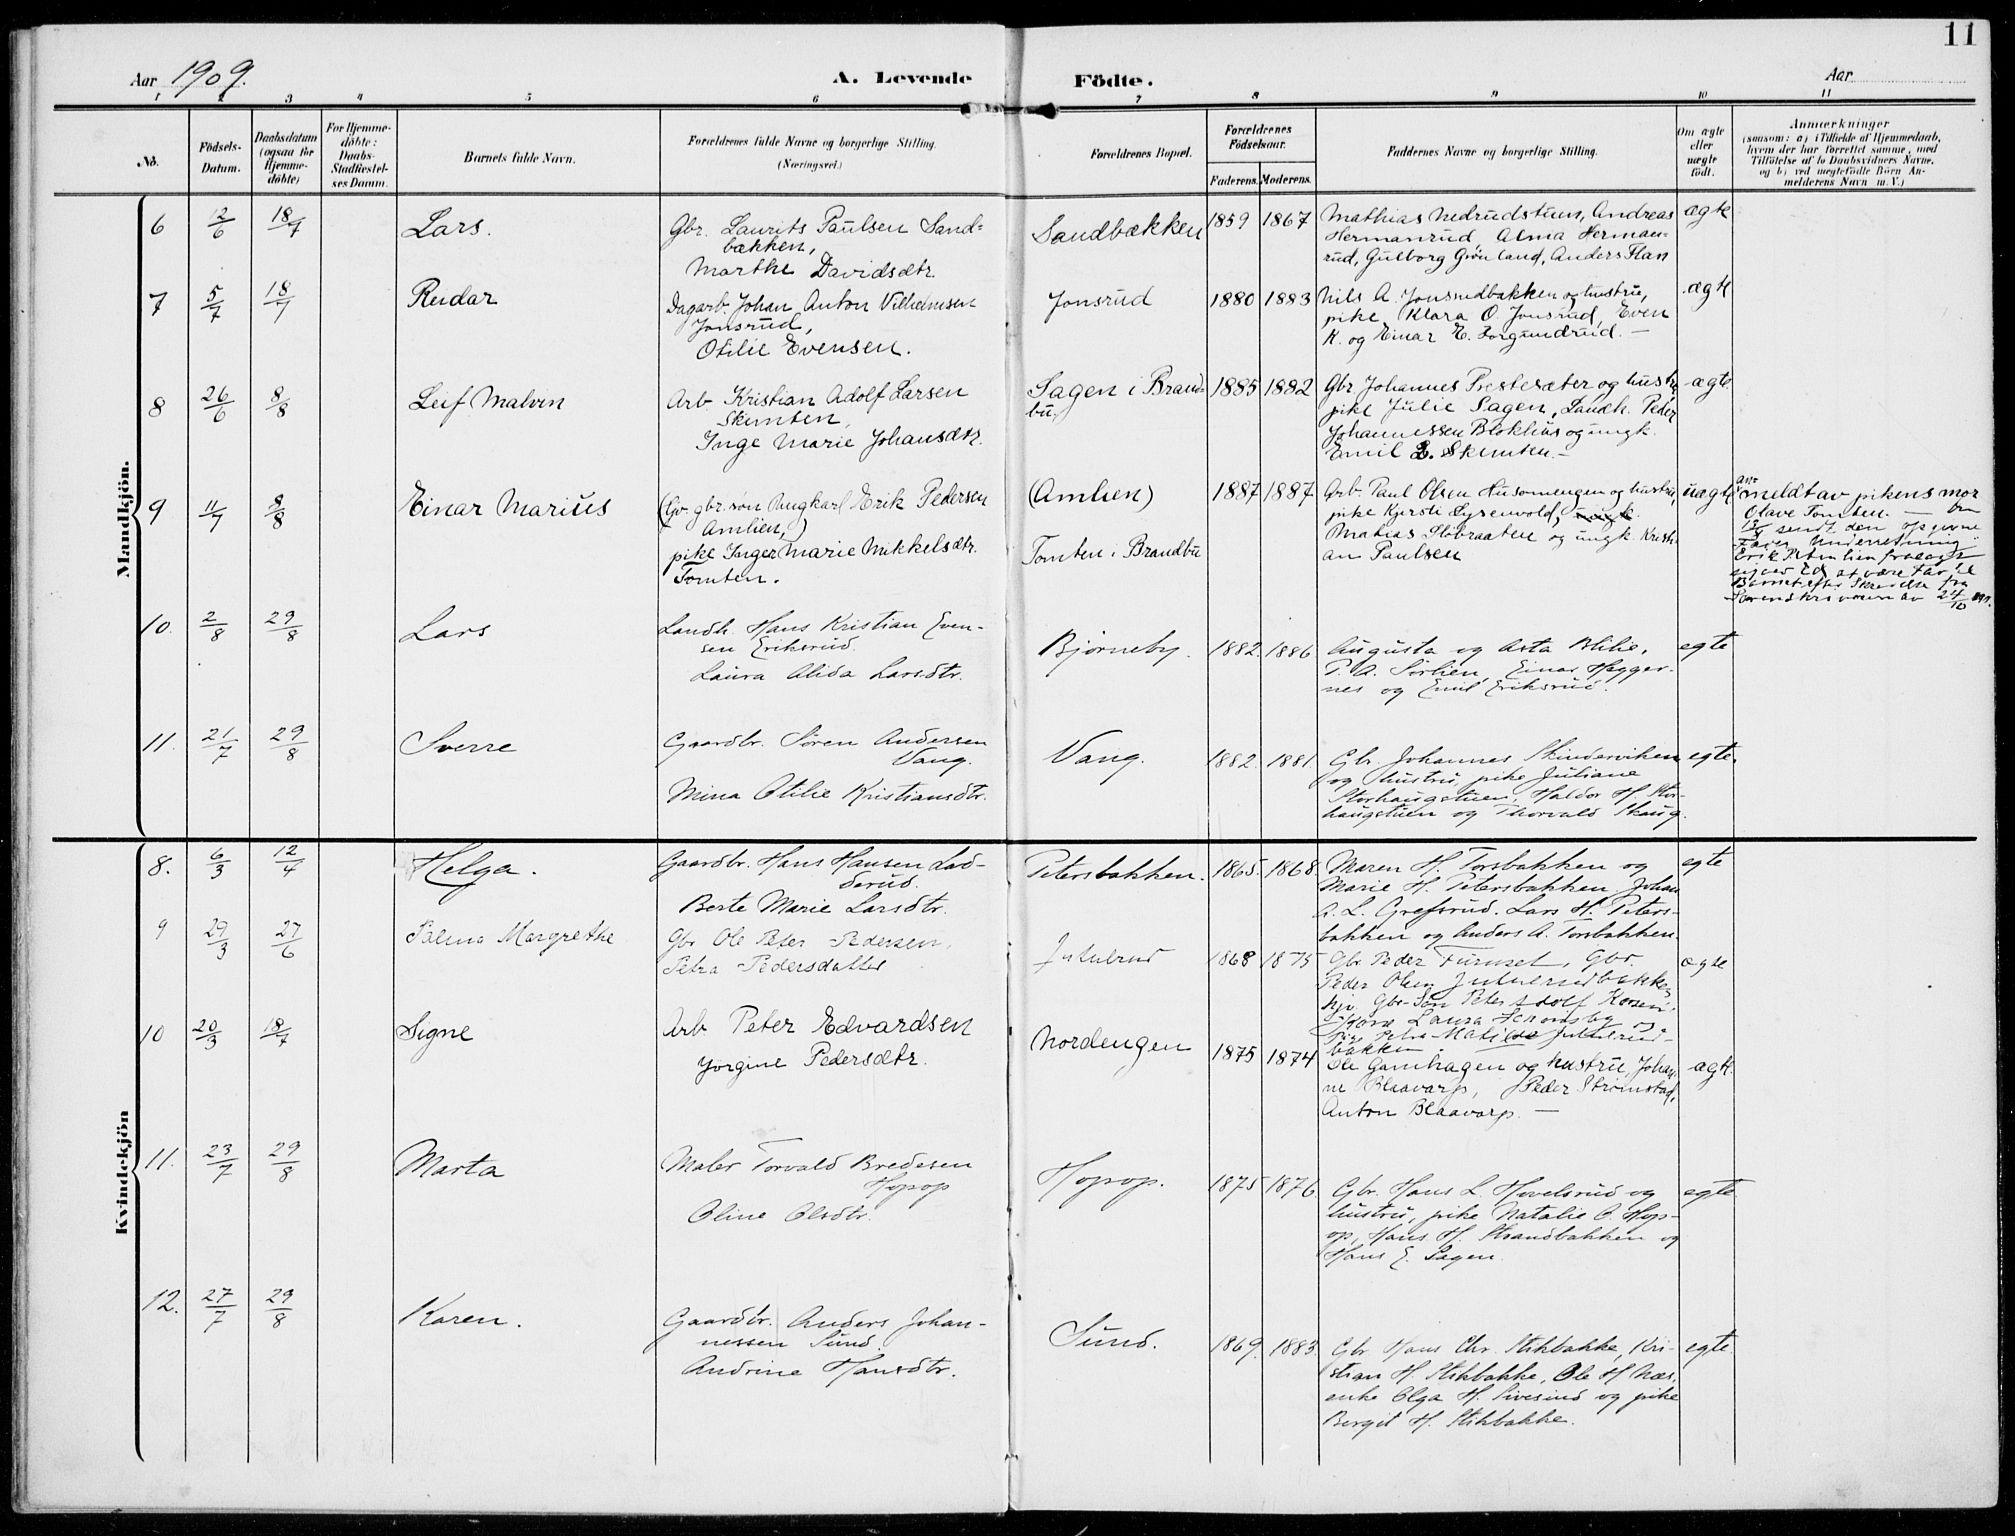 11
Aar 1909.
A. Levende Födte.
Aar
1 2 3 4 5 6 7 8 9 10 11
No.
Födsels-
Datum.
Daabsdatum
(ogsaa for
Hjemme-
döbte)
For Hjemme-
döbte:
Daabs-
Stadfæstel-
ses Datum.
Barnets fulde Navn.
Forældrenes fulde Navne og borgerlige Stilling.
(Næringsvei.)
Forældrenes Bopæl.
Forældrenes
Födselsaar.
Faderens. Moderens.
Faddernes Navne og borgerlige Stilling.
Om ægte
eller
uægte
født.
Anmærkninger
(saasom: a) i Tilfælde af Hjemmedaab,
hvem der har forrettet samme, med
Tilföielse af to Daabsvidners Navne,
og b) ved uægtefödte Börn An-
melderens Navn m. V.)
Mandkjön.
6 12/6 18/7 Lars.
Gbr. Laurits Paulsen Sand=
bækken,
Marthe Davidsdtr.
Sandbækken 1859 1867
Mathias Nedrudstuen, Andreas
Hermanrud, Alma Herman=
rud, Gulborg Grønland, Anders Flan
ægte
7 5/7 18/7 Reidar
Dagarb. Johan Anton Vilhelmsen
Jonsrud,
Otilie Evensen.
Jonsrud 1880 1883
Nils A. Jonsrudbakken og hustru,
pike Klara O. Jonsrud, Even
K. og Einar E. Borgundrud. —
ægte
8 26/6 8/8 Leif Malvin
Arb. Kristian Adolf Larsen
Skimten,
Inge Marie Johansdtr.
Sagen i Brand=
bu, 1885 1882
Gbr Johannes Prestesæter og hustru
pike Julie Sagen, Landh. Peder
Johannessen Blokhus og ungk.
Emil L. Skimten. —
ægte
9 11/7 8/8 Einar Marius
(Gv. gbr. søn Ungkarl Erik Pedersen
Amlien,)
pike Inger Marie Mikkelsdtr.
Tomten.
(Amlien)
Tomten i Brandbu
1887 1887
Arb. Paul Olsen Husomengen og hustru,
pike Kjersti Lysenvold,
Mathias Slobraaten og ungk. Kristi-
an Paulsen
uægte
an-
meldt av pikens mor
Olave Tomten. —
sendt den opgivne
Fader Underretning
10. 2/8 29/8 Lars
Landh. Hans Kristian Even-
sen Eriksrud.
Laura Alida Larsdtr.
Bjørneby. 1882. 1886
Augusta og Asta Blilie,
P. A. Sørlien, Einar Hegger-
nes og Emil Eriksrud.
egte
11. 21/7 29/8 Sverre
Gaardbr. Søren Andersen
Vang.
Mina Otilie Kristiansdtr.
Vang. 1882. 1881.
Gbr. Johannes Skinderviken
og hustru, pike Juliane
Storhaugstuen, Haldor H. Stor-
haugstuen og Thorvald Skaug.
egte.
Kvindekjön
8. 6/3 12/4 Helga.
Gaardbr. Hans Hansen Lad-
derud.
Berte Marie Larsdtr.
Petersbakken. 1865. 1868.
Maren H. Torsbakken og
Marie H. Petersbakken, Johan
A. L. Grefsrud. Lars H. Peters-
bakken og Anders A. Torsbakken.
egte
9 29/3 27/6 Palma Margrethe
Gbr Ole Peter Pedersen,
Petra Pedersdatter
Jutulrud 1868 1875
Gbr Peder Furuset, Gbr.
Peder Olsen Jutulrudbakken,
Gbr-Søn Peter Adolf Korsen,
Kone Laura Schomsby og
Pige Petra Matilde Jutulrud-
bakken
ægte
10 20/3 18/7 Signe
Arb Peter Edvardsen
Jørgine Pedersdtr.
Nordengen 1875 1874
Ole Gamhagen og hustru, Johan-
ne Blaavarp, Peder Strømstad,
Anton Blaavarp. —
ægte.
11. 23/7 29/8 Marta
Maler Torvald Bredesen
Hopop
Oline Olsdtr.
Hopop. 1875 1876.
Gbr. Hans L. Hovelsrud og
hustru, pike Natalie O. Hop-
op, Hans H. Strandbakken og
Hans E. Sagen.
egte
12. 27/7 29/8 Karen.
Gaardbr. Anders Johan-
nessen Sund.
Andrine Hansdtr.
Sund. 1869. 1883.
Gbr Hans Chr. Stikbakke, Kri-
stian H. Stikbakke, Ole H Næs,
enke Olga H. Sivesind og pike
Bergit H. Stikbakke.
egte